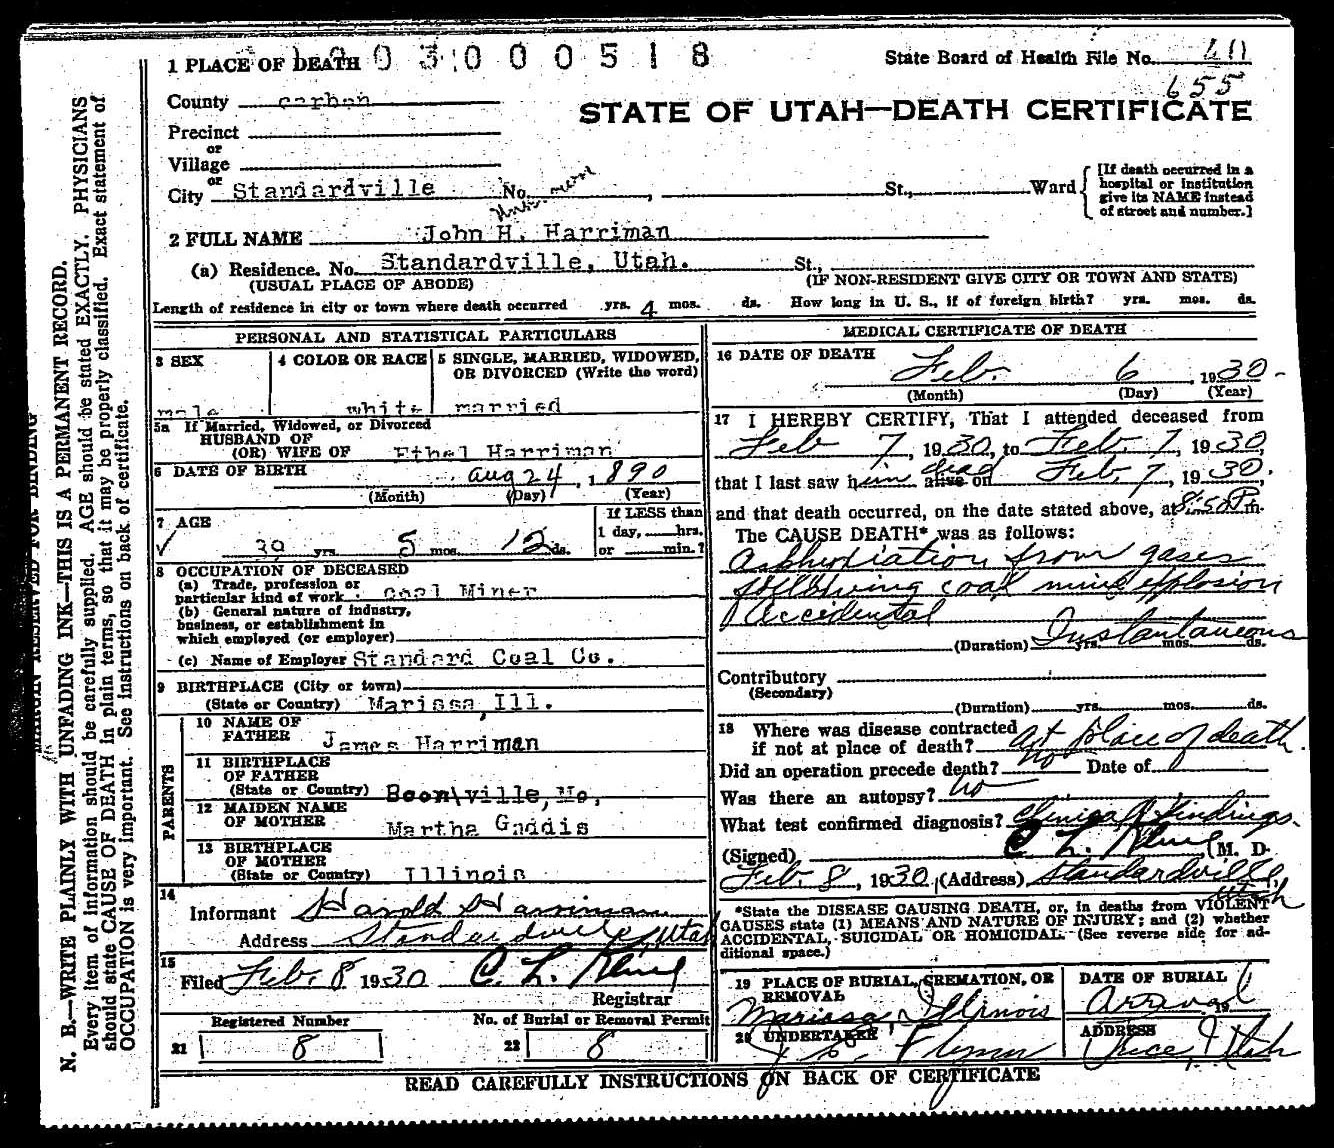 1 PLACE OF DEATH 03000518
State Board of Health File No. 40
655
County carbon
STATE OF UTAH—DEATH CERTIFICATE
Precinct
or
Village
or
City Standardville No. St., Ward
[If death occurred in a hospital or institution give its NAME instead of street and number.]
2 FULL NAME John H. Harriman
(a) Residence. No. Standardville, Utah. St.,
(USUAL PLACE OF ABODE) (IF NON-RESIDENT GIVE CITY OR TOWN AND STATE)
Length of residence in city or town where death occurred yrs. 4 mos. ds. How long in U. S., if of foreign birth? yrs. mos. ds.
PERSONAL AND STATISTICAL PARTICULARS
3 SEX
male
4 COLOR OR RACE
white
5 SINGLE, MARRIED, WIDOWED, OR DIVORCED (Write the word)
married
5a If Married, Widowed, or Divorced
HUSBAND OF
(OR) WIFE OF Ethel Harriman
6 DATE OF BIRTH Aug 24, 1890
(Month) (Day) (Year)
7 AGE
39 yrs. 5 mos. 12 ds.
If LESS than
1 day, hrs.
or min.?
8 OCCUPATION OF DECEASED
(a) Trade, profession or
particular kind of work Coal Miner
(b) General nature of industry,
business, or establishment in
which employed (or employer)
(c) Name of Employer Standard Coal Co.
9 BIRTHPLACE (City or town)
(State or Country) Marissa, Ill.
PARENTS
10 NAME OF
FATHER James Harriman
11 BIRTHPLACE
OF FATHER
(State or Country) Boonville, Mo,
12 MAIDEN NAME
OF MOTHER Martha Gaddis
13 BIRTHPLACE
OF MOTHER
(State or Country) Illinois
14
Informant Harold Harriman
Address Standardville, Utah
15
Filed Feb. 8 1930 C. L.
Registrar
Registered Number
21 8
No. of Burial or Removal Permit
22 8
MEDICAL CERTIFICATE OF DEATH
16 DATE OF DEATH
Feb. 6, 1930
(Month) (Day) (Year)
17 I HEREBY CERTIFY, That I attended deceased from
Feb 7, 1930, to Feb. 7, 1930,
that I last saw him alive on dead Feb. 7, 1930.
and that death occurred, on the date stated above, at 8:50 P. m.
The CAUSE DEATH* was as follows:
Asphyxiation from gases
following coal mine explosion
Accidental
(Duration) Instantaneous yrs. mos. ds.
Contributory
(Secondary)
(Duration) yrs. mos. ds.
18 Where was disease contracted
if not at place of death? At place of death.
Did an operation precede death? no Date of
Was there an autopsy? no
What test confirmed diagnosis? Clinical Findings.
(Signed) C. L. (M. D.
Feb. 8, 1930 (Address) Standardville,
Utah
*State the DISEASE CAUSING DEATH, or, in deaths from VIOLENT
CAUSES state (1) MEANS AND NATURE OF INJURY; and (2) whether
ACCIDENTAL, SUICIDAL OR HOMICIDAL. (See reverse side for ad-
ditional space.)
19 PLACE OF BURIAL, CREMATION, OR
REMOVAL
Marissa, Illinois
DATE OF BURIAL
Arrival 19
20 UNDERTAKER
J. E. Flynn
ADDRESS
Price, Utah
READ CAREFULLY INSTRUCTIONS ON BACK OF CERTIFICATE
MARGIN RESERVED FOR BINDING
N. B.—WRITE PLAINLY WITH UNFADING INK—THIS IS A PERMANENT RECORD.
Every item of information should be carefully supplied. AGE should be stated EXACTLY. PHYSICIANS
should state CAUSE OF DEATH in plain terms, so that it may be properly classified. Exact statement of
OCCUPATION is very important. See instructions on back of certificate.